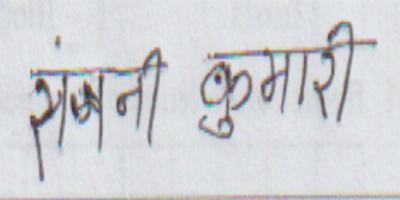 रंजनी कुमारी